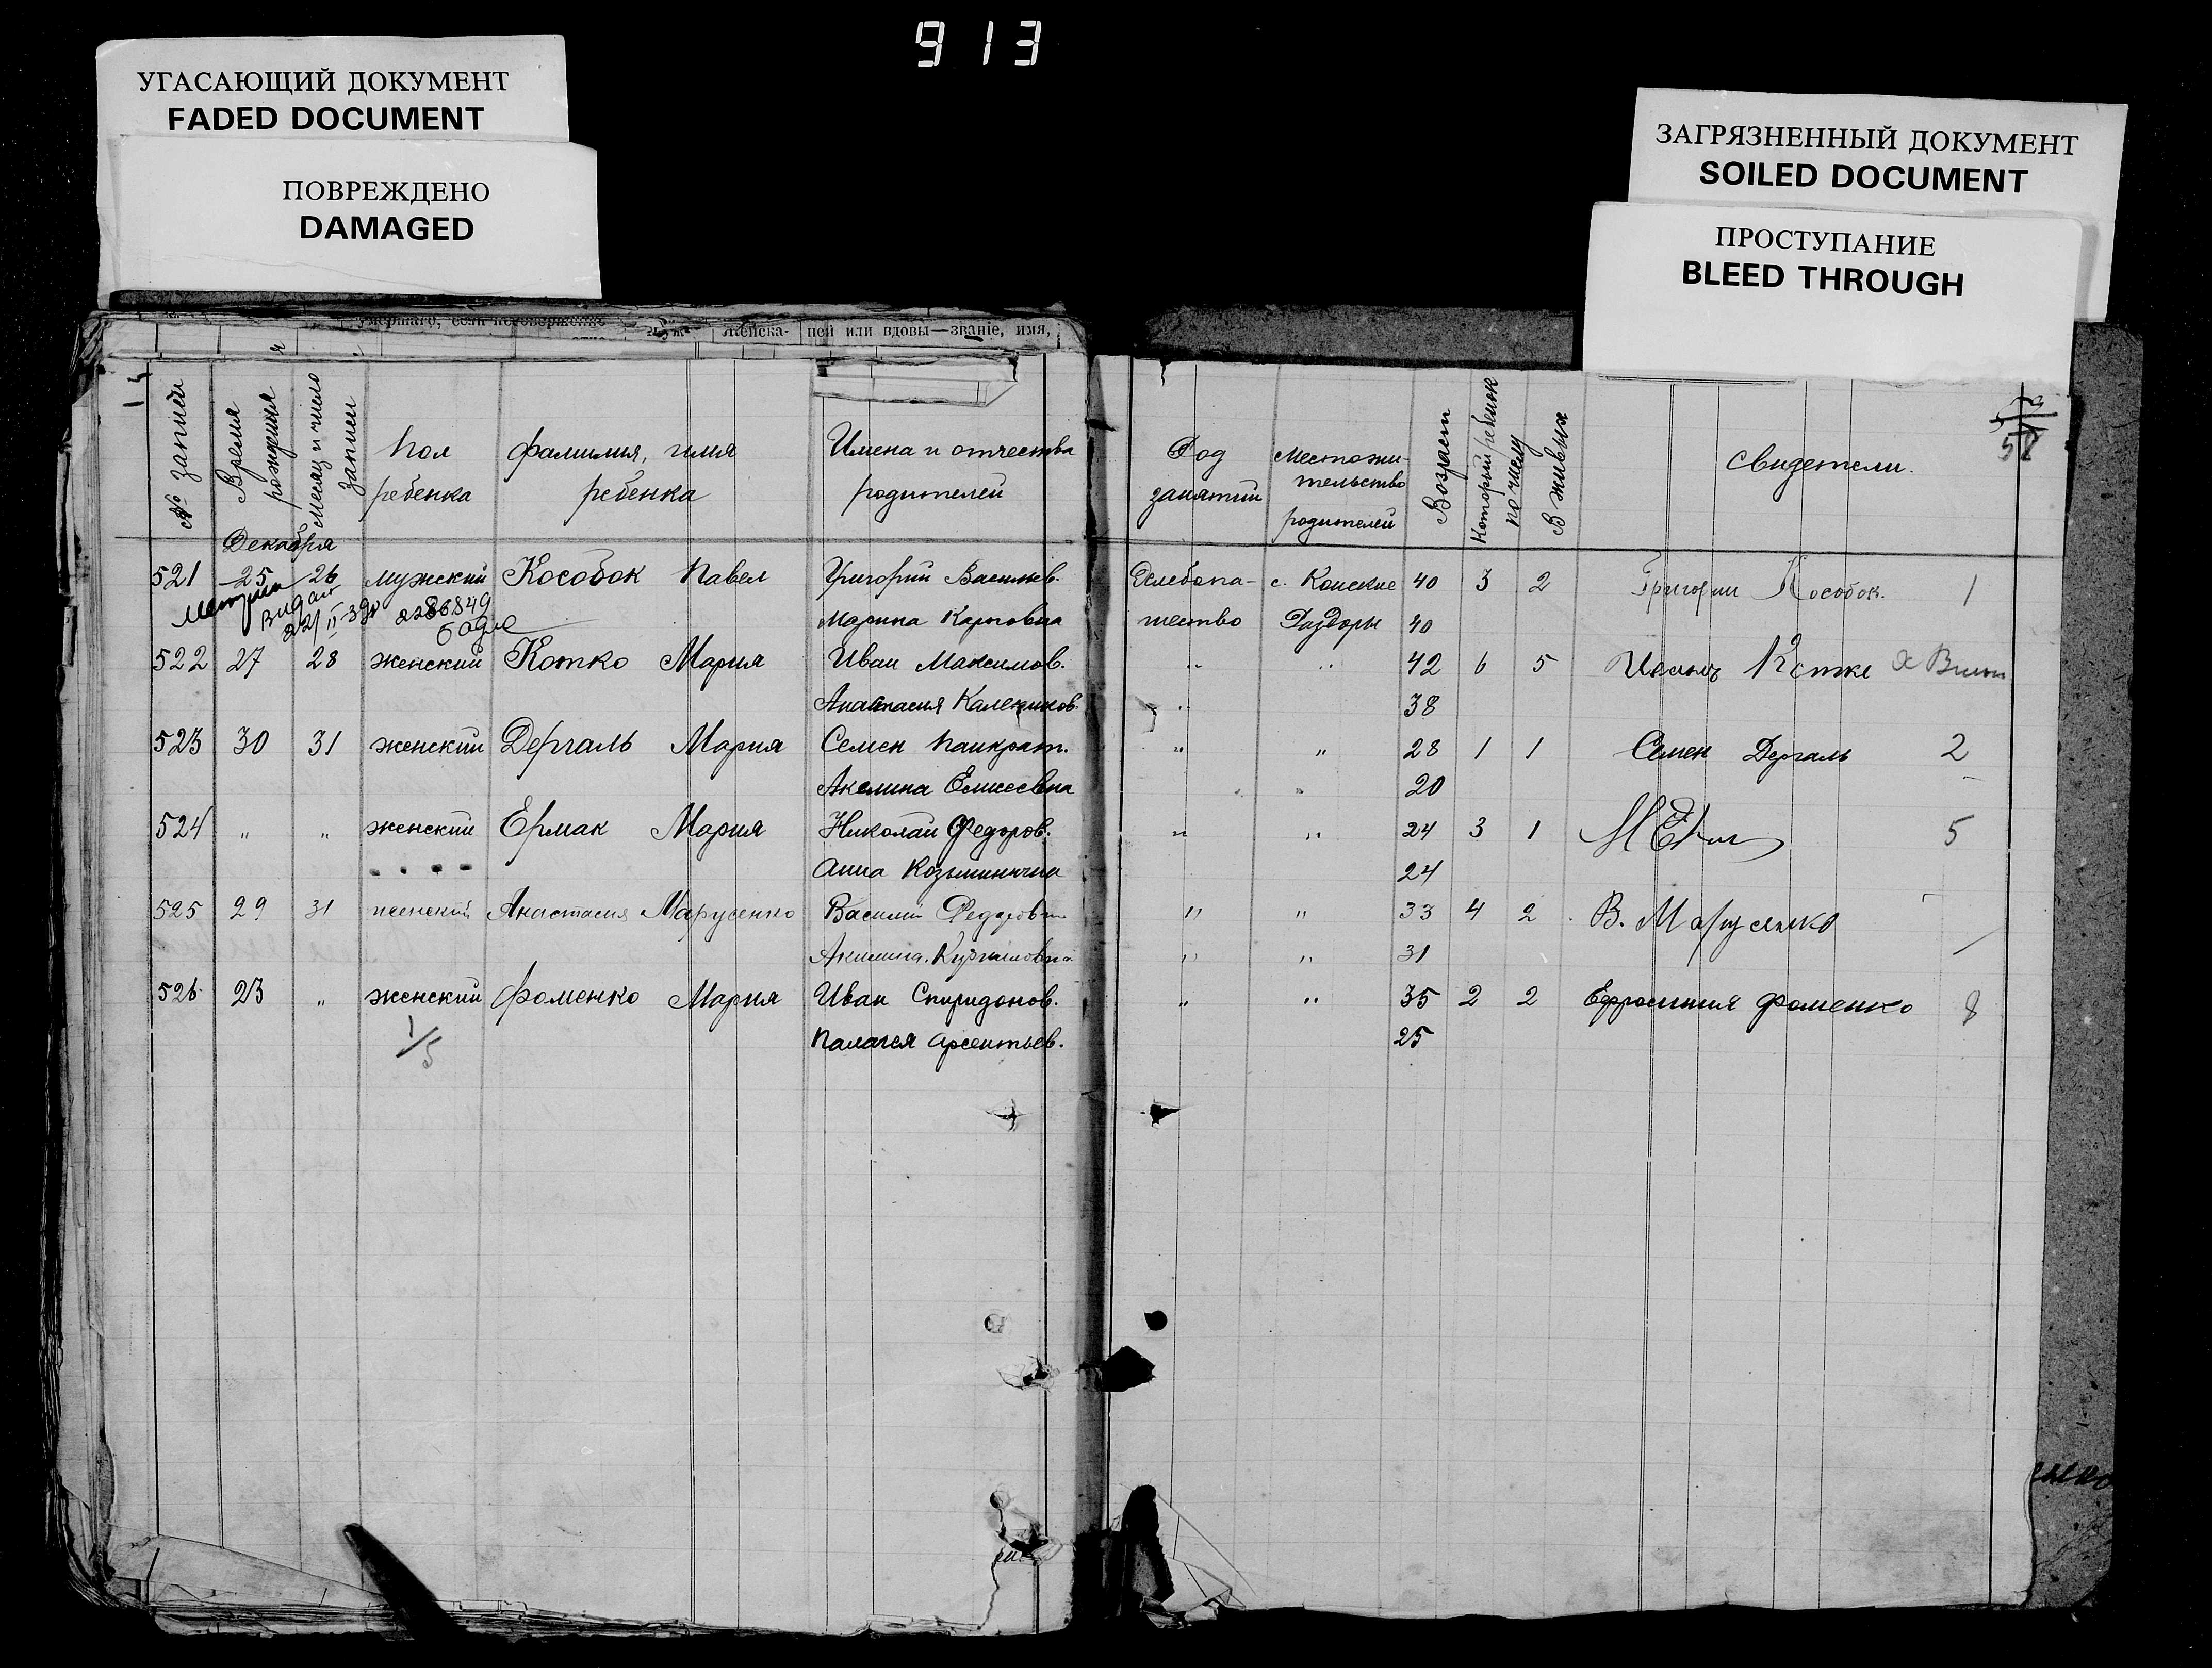 913
УГАСАЮЩИЙ ДОКУМЕНТ
FADED DOCUMENT
ПОВРЕЖДЕНО
DAMAGED
ЗАГРЯЗНЕННЫЙ ДОКУМЕНТ
SOILED DOCUMENT
ПРОСТУПАНИЕ
BLEED THROUGH
умершаго, если женска- ней или вдовы—званіе, имя,
58
№ записи
Время рождения
Месяц и число записи
Пол ребенка
Фамилия, имя ребенка
Имена и отчества родителей
Род занятий
Местожительство родителей
Возраст
Который ребенок по числу
В живых
Свидетели.
Декабря
521 25 26 мужский Кособок Павел Григорий Васильев. Хлебопа- с. Конские 40 3 2 Григорий Кособок. 1
Марина Карповна шество Раздоры 40
выдан 22/II-39 2286849
522 27 28 женский Котко Мария Иван Максимов. " " 42 6 5 Котке
Анастасия Калеников. " 38
523 30 31 женский Дергаль Мария Семен Панкрат. " " 28 1 1 Семен Дергаль 2
Акелина Елисеевна " " 20
524 " " женский Ермак Мария Николай Федоров. " " 24 3 1 5
Анна Козьминична 24
525 29 31 женский Анастасия Марусенко Василий Федорович " " 33 4 2 В. Марусенко
Акилина " " 31
526 23 " женский Фоменко Мария Иван Спиридонов. " " 35 2 2 Ефросиния Фоменко 8
1/5 Палагея Арсентьев. 25